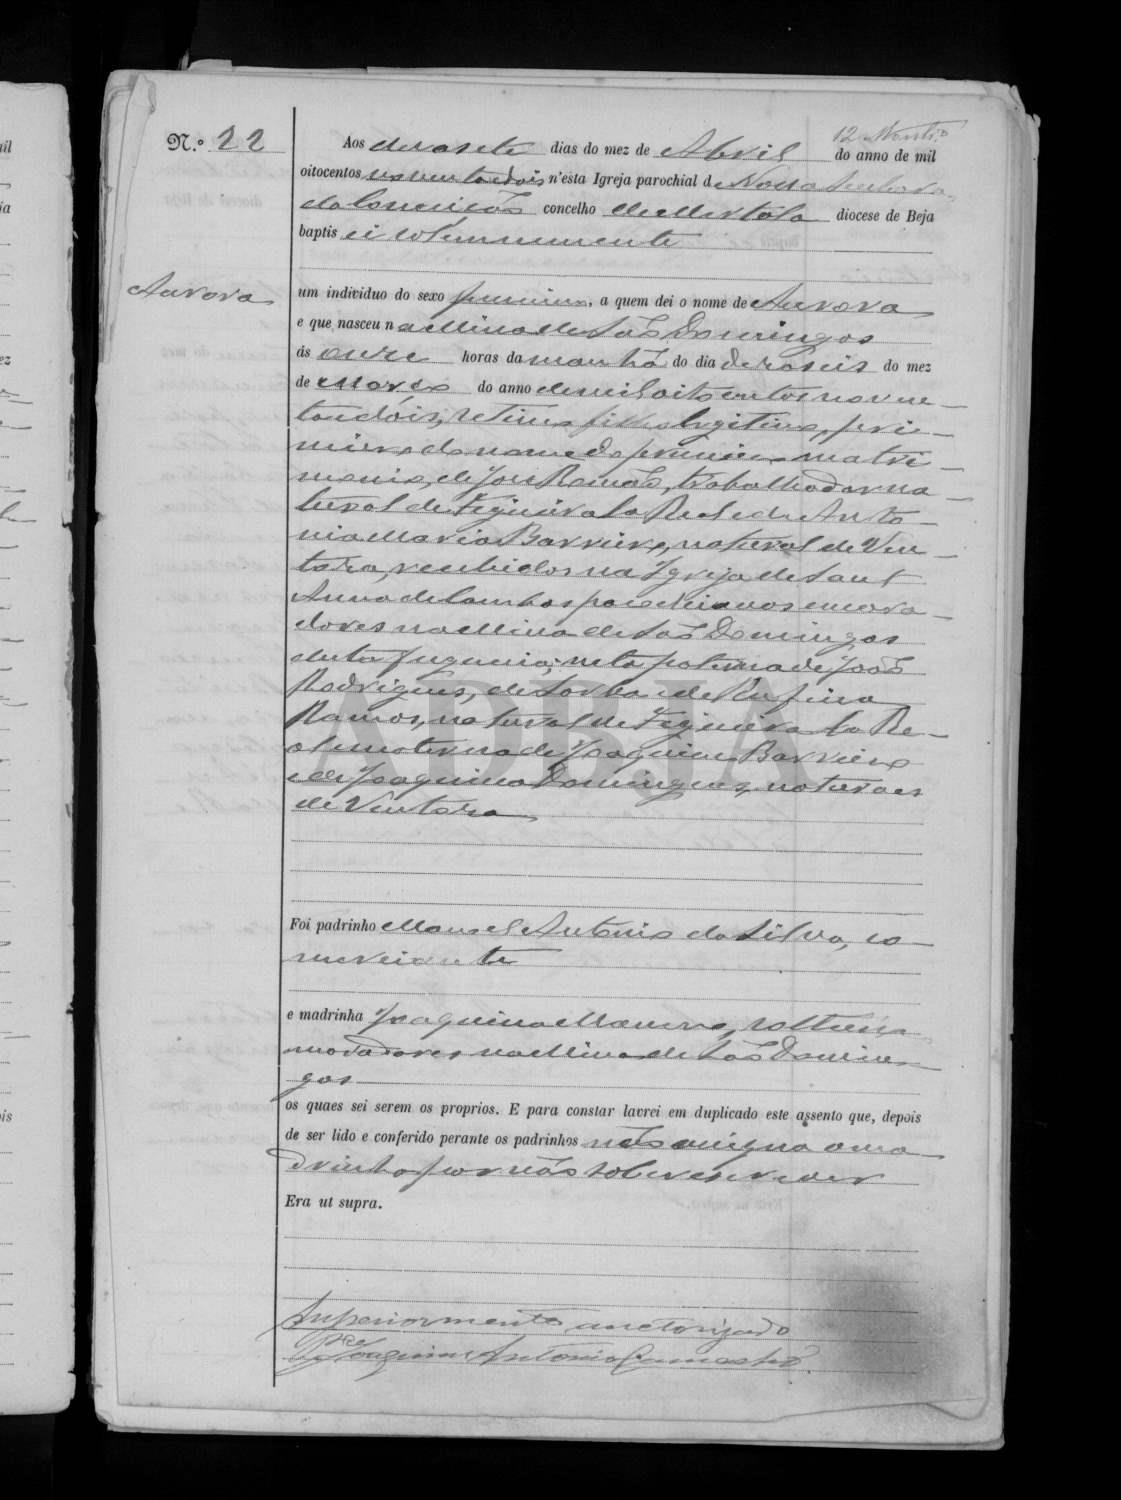 12 
N.º 22
Aos dezasete dias do mez de Abril do anno de mil
oitocentos noventa e dois n'esta Igreja parochial de Nossa Senhora
da Conceição concelho de Mertola diocese de Beja
baptisei solemnemente
Aurora
um individuo do sexo feminino, a quem dei o nome de Aurora
e que nasceu na Mina de São Domingos
ás onze horas da manhã do dia dezaseis do mez
de Março do anno de mil oito centos noven-
ta e dóis, setima filha legitima, pri-
meira do nome do primeiro matri-
monio, de José Ramão, trabalhador na-
tural de Figueira la Real e de Anto-
nia Maria Barreira, natural de Ven-
tozo, recebidos na Igreja de Sant
Anna de Cambas parochianos e mora-
dores na Mina de São Domingos
desta freguezia; neta paterna de João
Rodrigues, de e de Rufina
Ramos, natural de Figueira la Re-
al e materna de Joaquim Barreira
e de Joaquina Domingues, naturaes
de
Foi padrinho Manoel Antonio da Silva, co-
merciante
e madrinha Joaquina solteira
moradores na Mina de São Domin-
gos
os quaes sei serem os proprios. E para constar lavrei em duplicado este assento que, depois
de ser lido e conferido perante os padrinhos não assigna a ma-
drinha por não saber escrever
Era ut supra.
Superiormente auctorizado
Joaquim Antonio
ADBJA